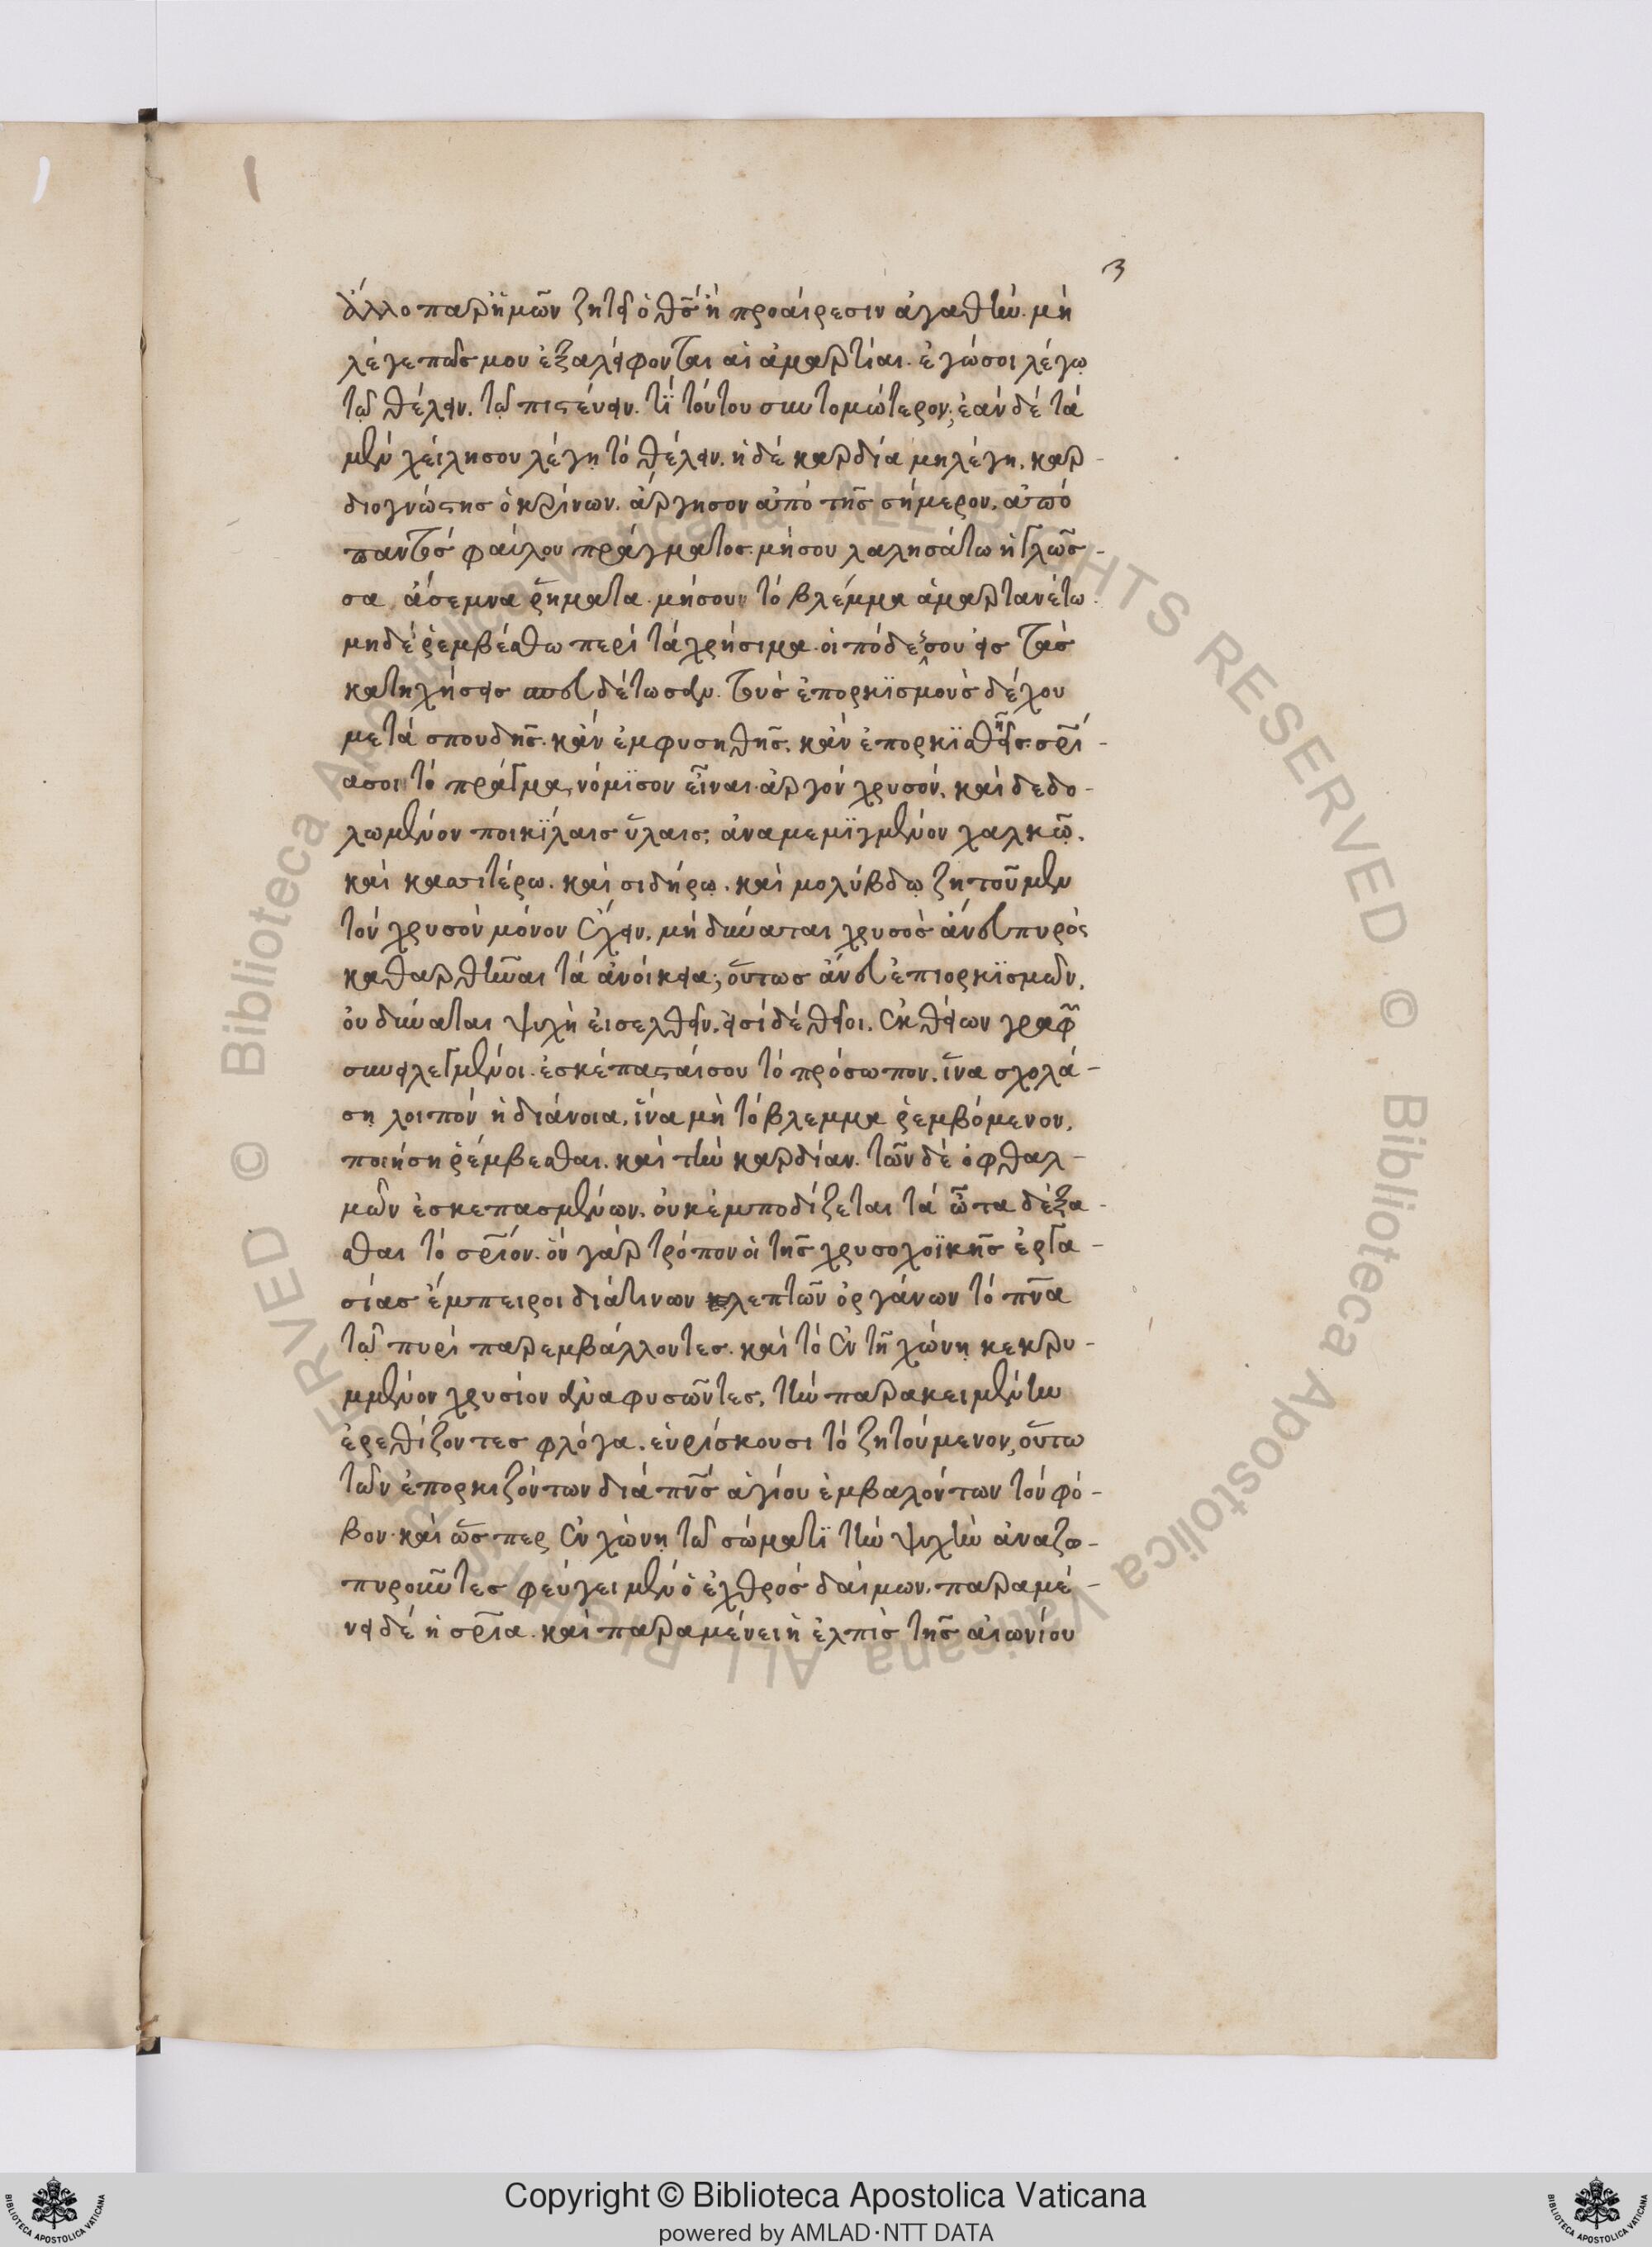 3
ἄλλο παρ' ἡμῶν ζητεῖ ὁ θς̅ ἢ προαίρεσιν ἀγαθήν. μὴ
λέγε πῶς μου ἐξαλείφονται αἱ ἁμαρτίαι. ἐγώ σοι λέγω
τῷ θέλειν. τῷ πιστεύειν. τί τούτου συντομώτερον; ἐὰν δὲ τὰ
μὲν χείλη σου λέγῃ τὸ θέλειν, ἡ δὲ καρδία μὴ λέγῃ, καρ-
διογνώστης ὁ κρίνων. ἄργησον ἀπὸ τῆς σήμερον. ἀπὸ
παντὸς φαύλου πράγματος. μή σου λαλησάτω ἡ γλῶσ-
σα ἄσεμνα ῥήματα. μή σου τὸ βλέμμα ἁμαρτανέτω.
μηδὲ ῥεμβέσθω περὶ τὰ χρήσιμα. οἱ πόδες σου εἰς τὰς
κατηχήσεις σπευδέτωσαν. τοὺς ἐπορκϊσμοὺς δέχου
μετὰ σπουδῆς. κἂν ἐμφυσηθῇς, κἂν ἐπορκϊσθῇς. σρί-
α σοι τὸ πρᾶγμα, νόμϊσον εἶναι ἀργὸν χρυσόν, καὶ δεδο-
λωμένον ποικίλαις ὕλαις, ἀναμεμϊγμένον χαλκῷ.
καὶ κασσιτέρω. καὶ σιδήρῳ. καὶ μολύβδῳ ζητοῦμεν
τὸν χρυσὸν μόνον ἔχειν. μὴ δύναται χρυσὸς ἄνευ πυρὸς
καθαρθῆναι τὰ ἀνοίκεια; οὕτως ἄνευ ἐπιορκϊσμῶν,
οὐ δύναται ψυχὴ εἰσελθεῖν. εἰσὶ δὲ θεῖοι. ἐκ θείων γραφῶν
συνειλεγμένοι. ἐσκέπασταί σου τὸ πρόσωπον. ἵνα σχολά-
σῃ λοιπὸν ἡ διάνοια. ἵνα μὴ τὸ βλεμμα ῥεμβόμενον,
ποιήσῃ ῥέμβεσθαι. καὶ τὴν καρδίαν. τῶν δὲ ὀφθαλ-
μῶν ἐσκεπασμένων. οὐκ ἐμποδίζεται τὰ ὦτα δέξα-
σθαι τὸ σριον. ὃν γὰρ τρόπον οἱ τῆς χρυσοχοϊκῆς ἐργα-
σίας ἔμπειροι διά τινων λεπτῶν ὀργάνων τὸ πνα
τῷ πυρὶ παρεμβάλλοντες. καὶ τὸ ἐν τῇ χώνῃ κεκρυ-
μμένον χρυσίον ἀναφυσῶντες, τὴν παρακειμένην
ἐρεθίζοντες φλόγα. εὑρίσκουσι τὸ ζητούμενον, οὕτω
τῶν ἐπορκιζόντων διὰ πνς ἁγίου ἐμβαλόντων τὸν φό-
βον. καὶ ὥσπερ ἐν χώνῃ τῷ σώματϊ τὴν ψυχὴν ἀναζω-
πυροῦντες φεύγει μὲν ὁ ἐχθρὸς δαίμων. παραμέ-
νει δὲ ἡ σρια. καὶ παραμένει ἡ ἐλπὶς τῆς αἰωνίου
Copyright © Biblioteca Apostolica Vaticana
powered by AMLAD·NTT DATA